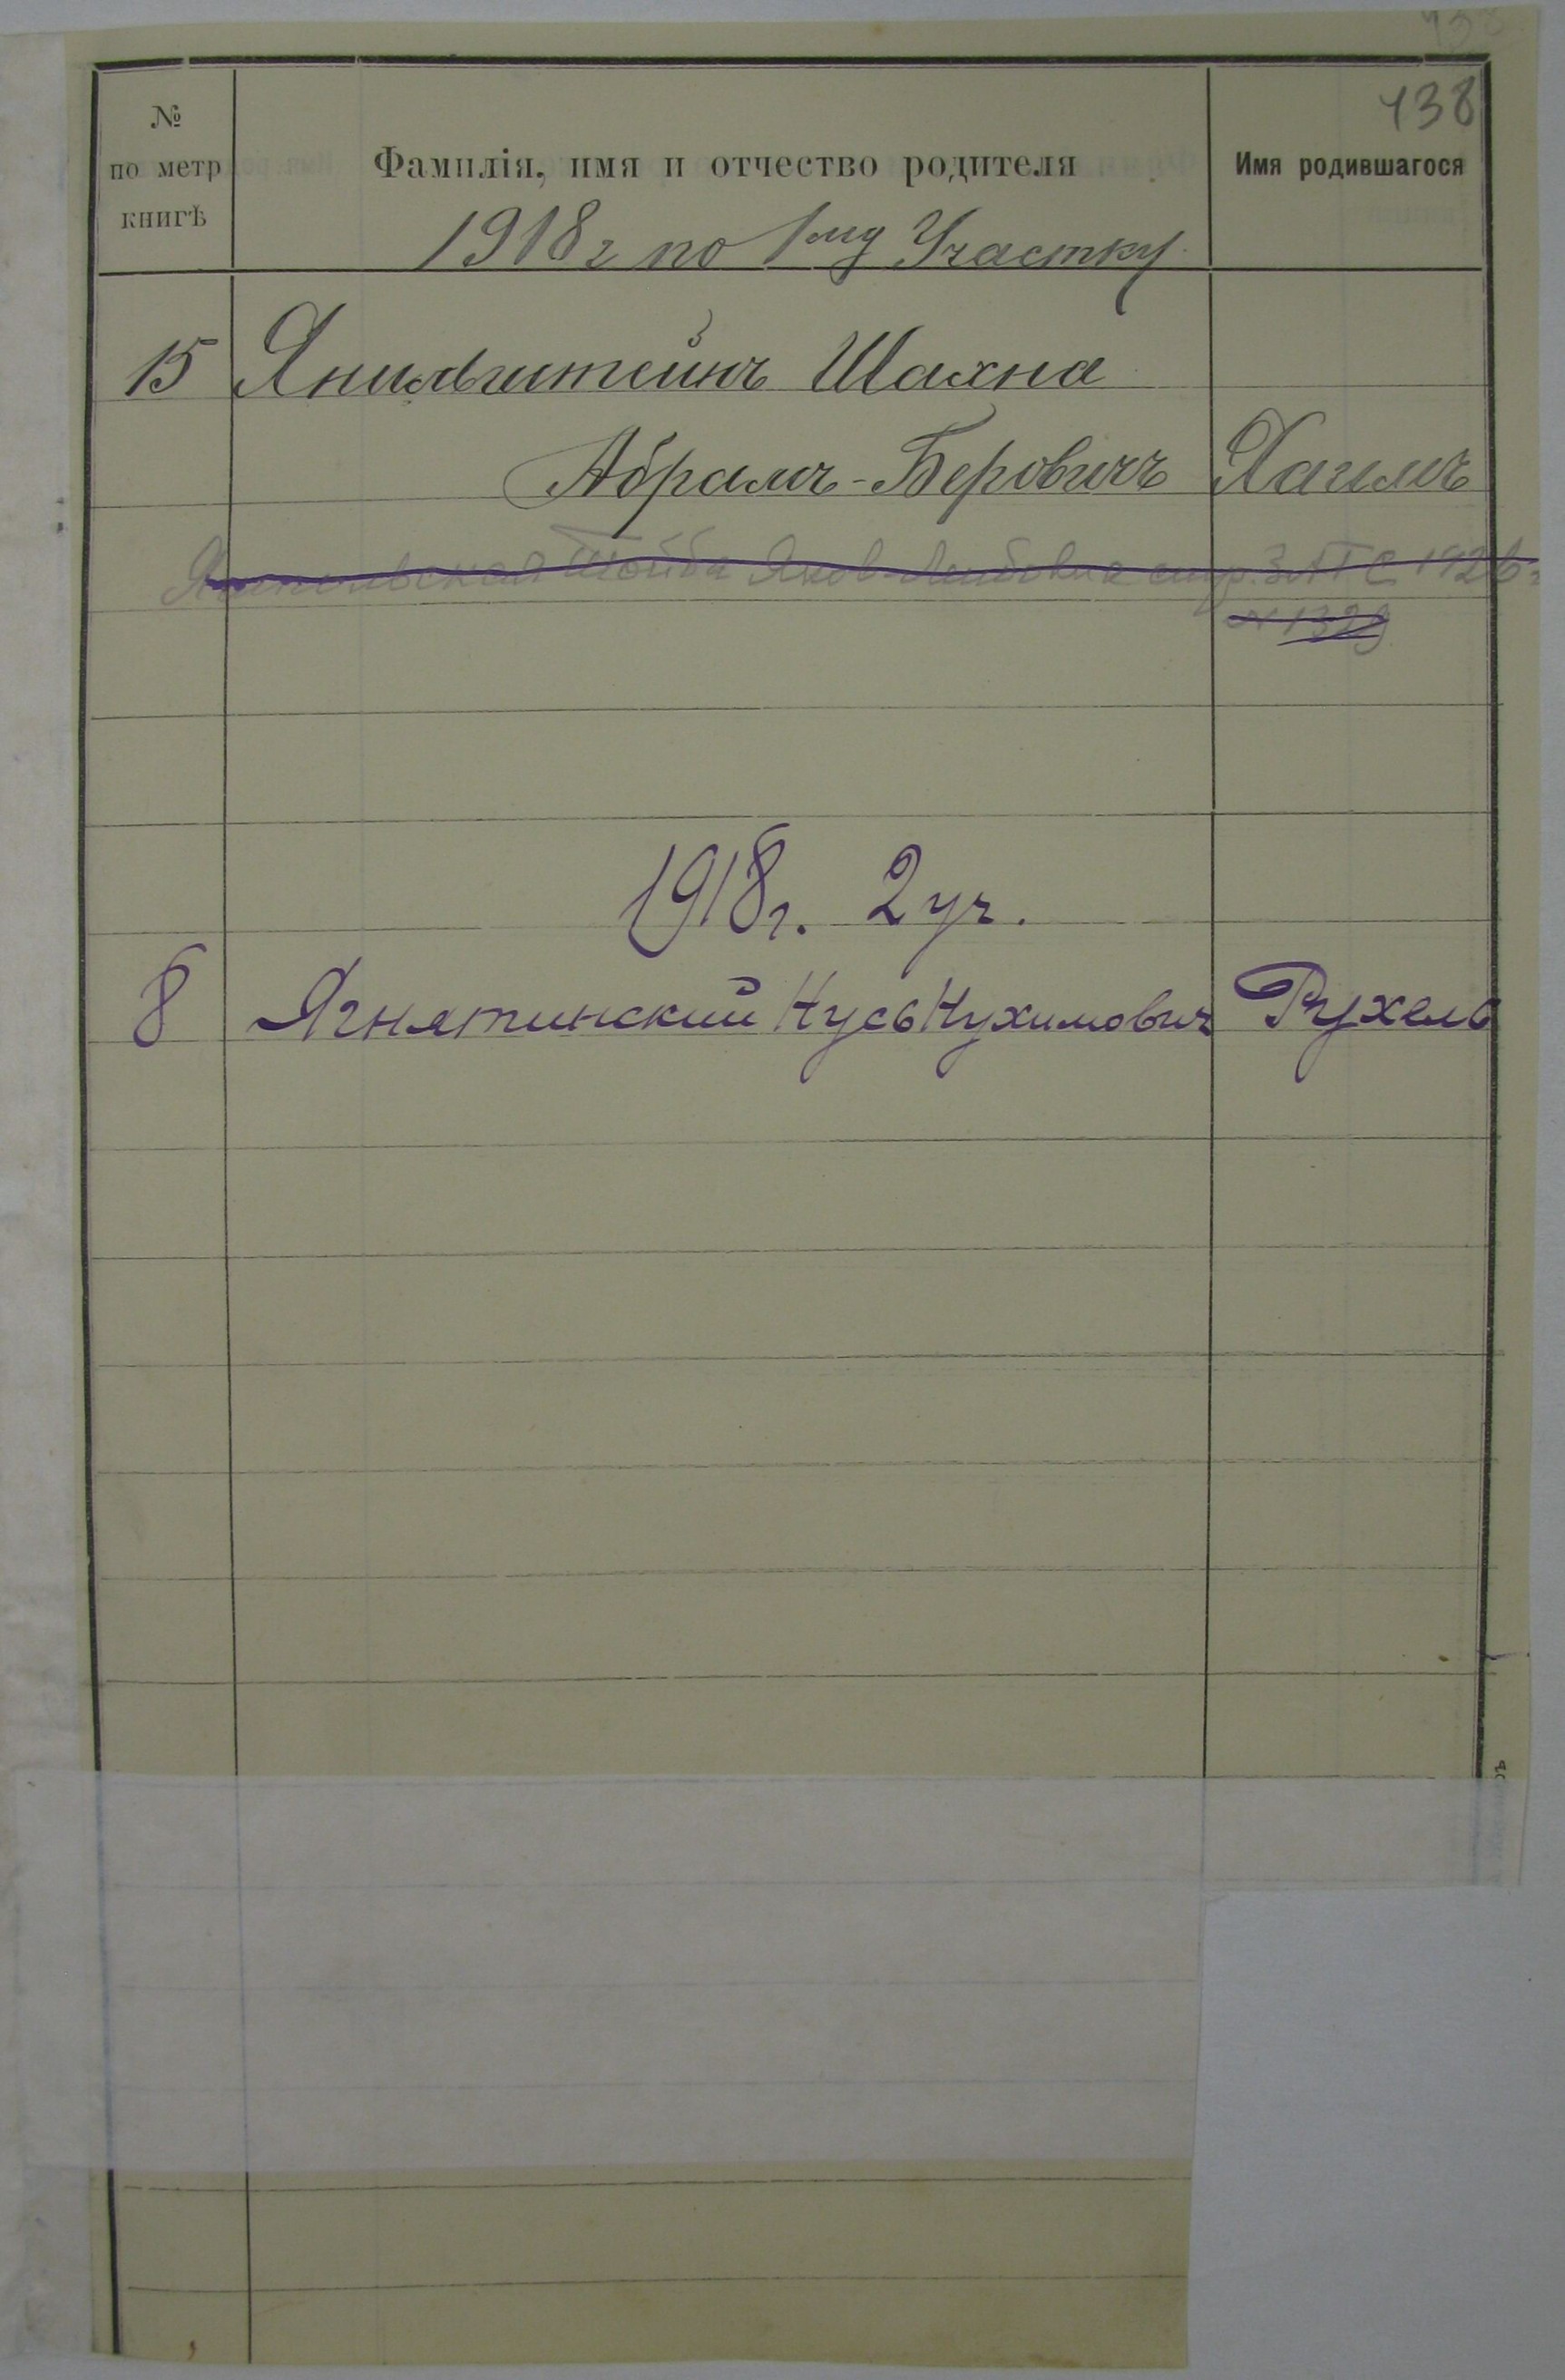 438
№ по метр книгѣ
Фамилія, имя и отчество родителя
Имя родившагося
1918 г по 1му Участку
15 Янишштейнъ Шахна
Абрамъ-Беровичъ Хаимъ
Тойба 1926 г
№ 1329
1918 г. 2 уч.
8 Ягнятинский Нусь Нухимович Рухель